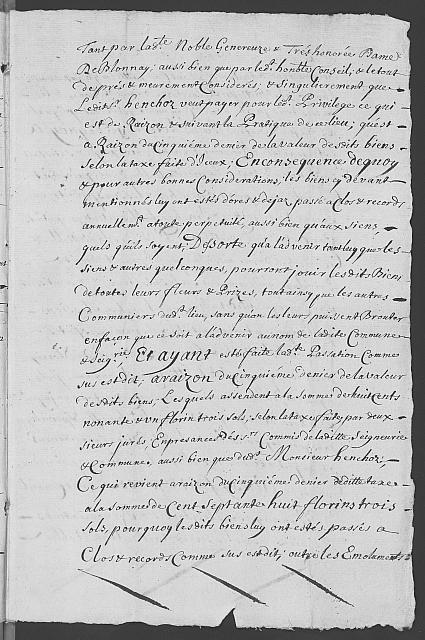 Tant par lad.te Noble Genereuze & Trés honorée Dame
De Blonnay; aussi bien que par led.t honble Conseil; & le tout
de prés & meurement Considéré; & singulierement que
Ledit Sr. henchoz veut payer pour led.t Privilege ce qui
est de Raizon & suivant la Pratique de ce lieu; qu'est
a Raizon du cinquiéme denier de la valeur desdits biens
selon la taxe faite d'Iceux; En consequence dequoy
& pour autres bonnes Considerations; les biens cy devant
mentionnés luy ont estés dores & dejaz passé a clos & record,
annuellem.t a toute perpetuité, aussi bien qu'aux siens,
quels qu'ils soyent; De sorte qu'a l'advenir tant luy que les
siens & autres quelconques, pourront jouir lesdit Biens
de toutes leurs fleurs & Prizes, tout ainsy que les autres
Communiers dud.t lieu, sans qu'on les leurs puissent Brouter
en façon que ce soit a l'advenir au nom de ladite Commune
& Seig.rie Et ayant esté faite lad.te Passation Comme
sus est dit; a raizon du cinquiéme denier de la valeur
desdits biens; Lesquels assendent a la somme de huit cents
nonante & un florin trois sols; selon la taxe faite par deux
sieurs jurés, En presence dés Srs Commis de laditte Seigneurie
& Commune, aussi bien que dud.t Monsieur henchoz;
Ce qui revient a raizon du cinquiéme denier deditte taxe
a la somme de Cent septante huit florins trois
sols, pourquoy lesdits biens luy ont estés passés a
Clos & records Comme sus est dit; outre les Emolaments